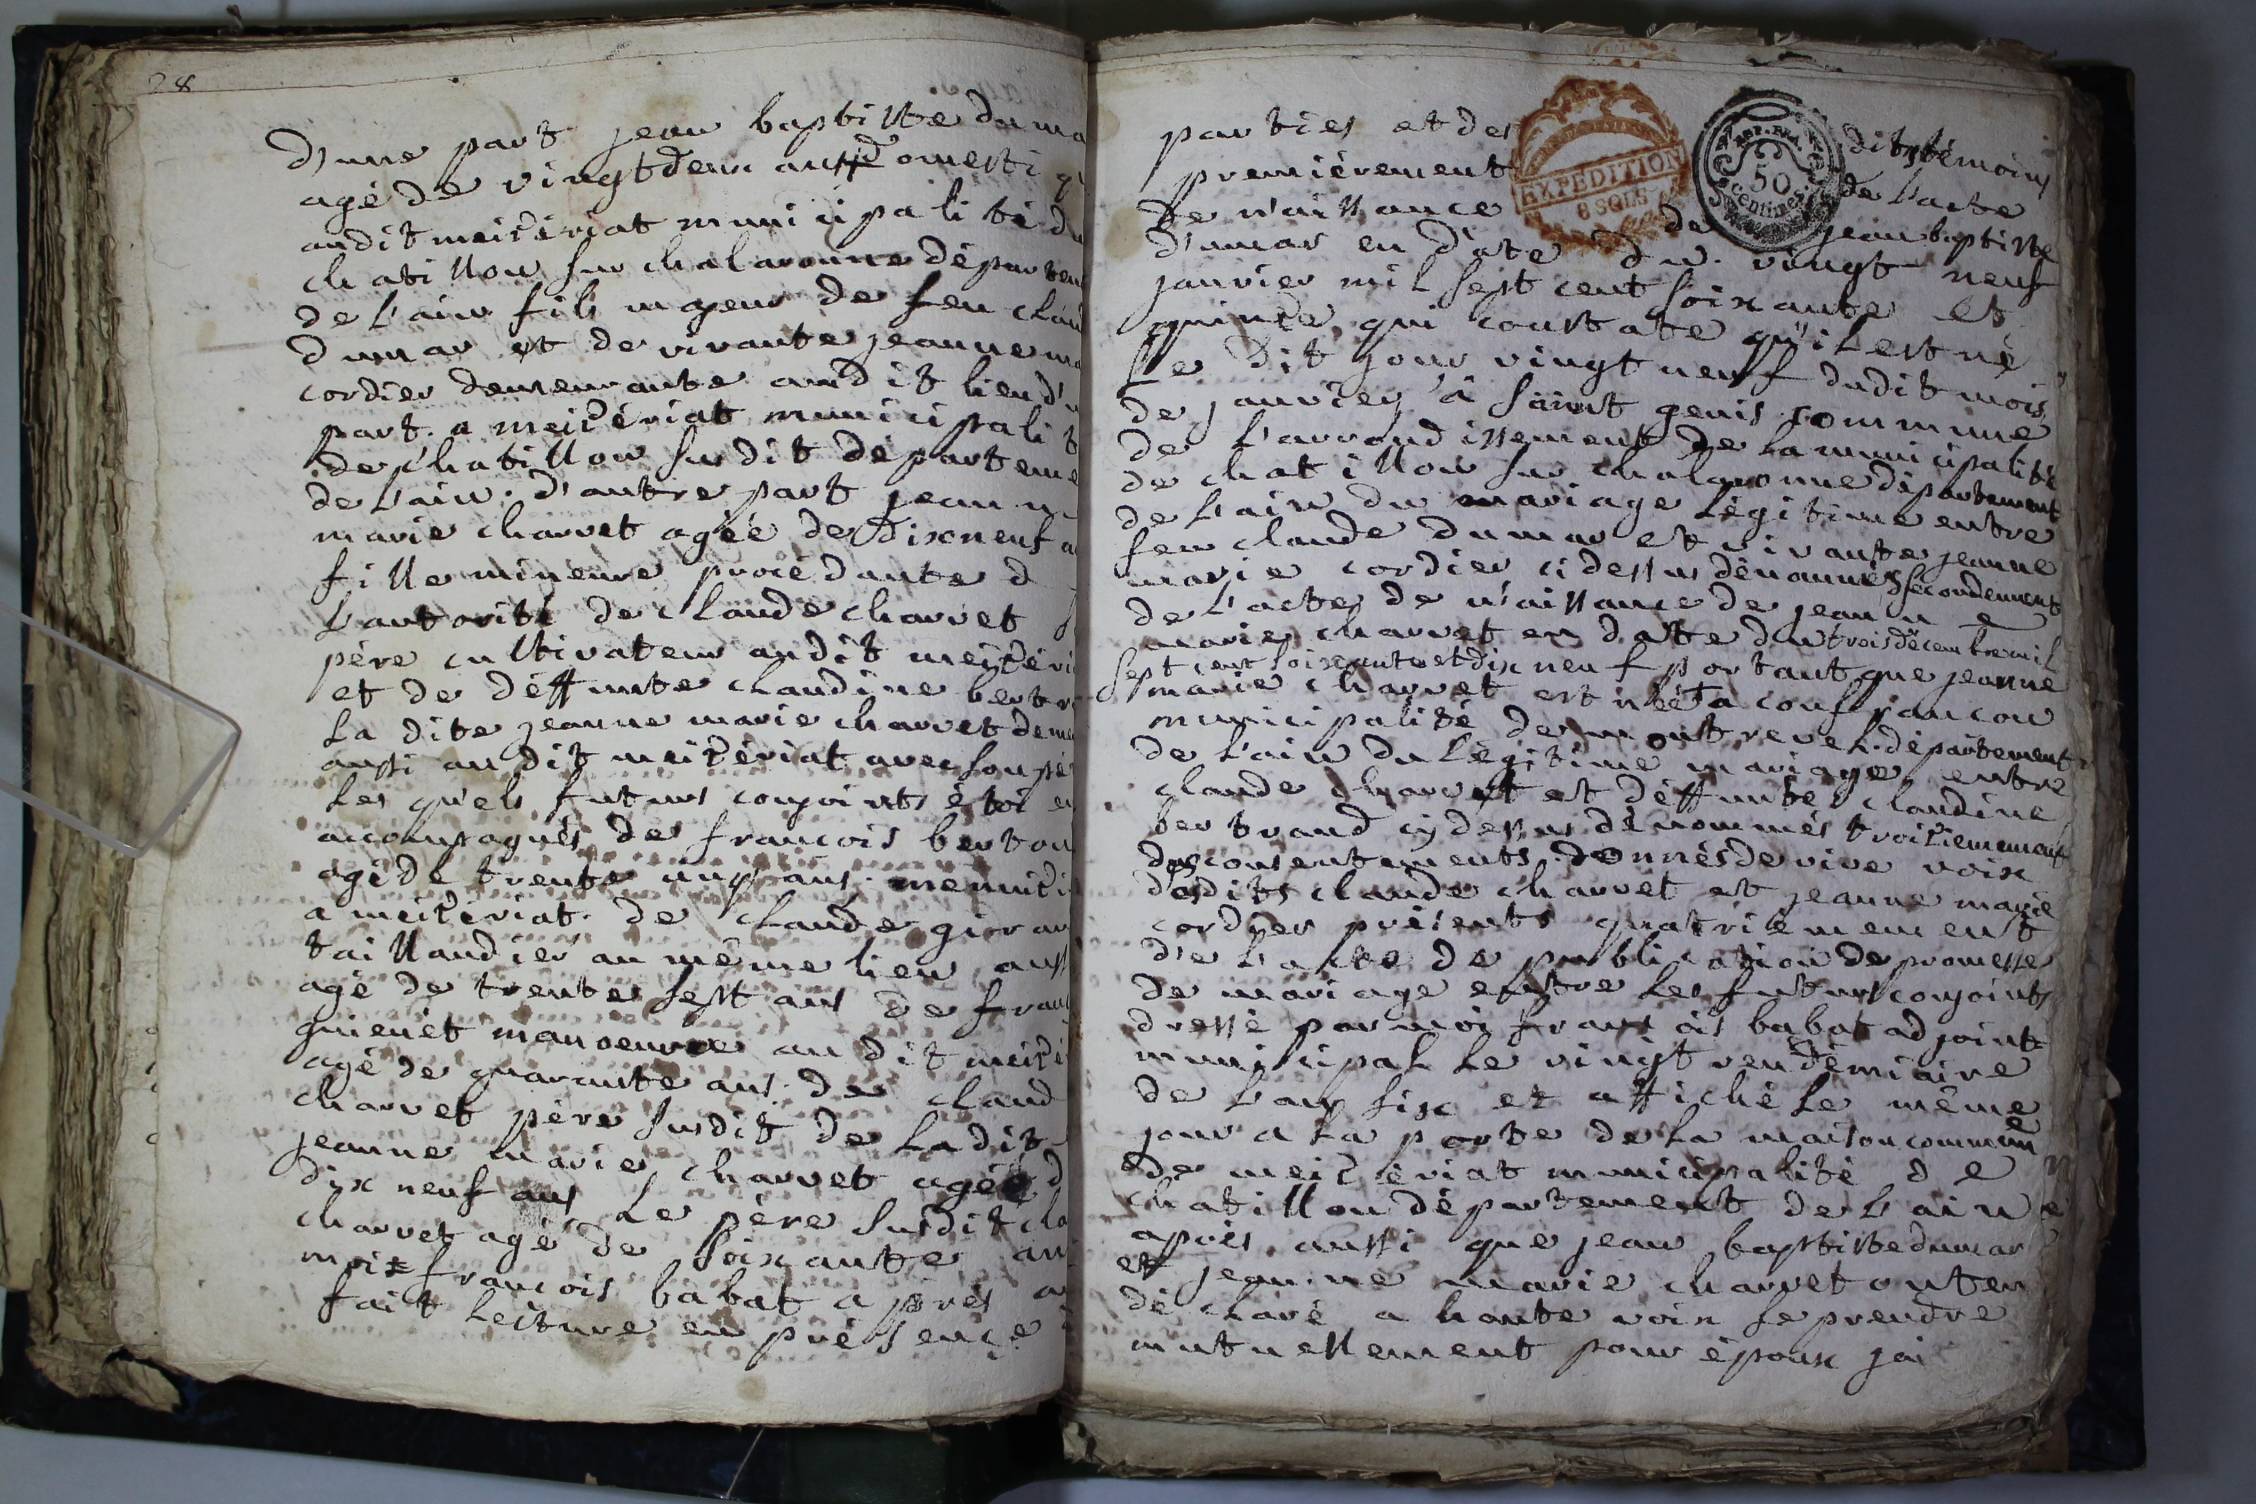 28
D'une part jean baptiste duma
agé de vingtdeux ans domestiq
audit meizériat municipalité du
chatillon sur chalaronne départem
de L'ain fils majeur de feu claud
dumar et de vivante jeanne ma
cordier demeurante audit lieu d'u
part a meizériat municipalit
de chatillon susdit départeme
de L'ain. d'autre part jeann
marie charvet agée de dixneuf a
fille mineure procédante d
L'autorité de claude charvet s
père cultivateur audit meizéri
et de déffunte claudine bertr
La dite jeanne marie charvet deme
aussi audit meizériat avec son pè
Les quels futurs conjoints étoi e
accompagnés de francois berton
agé de trente un ans menuizi
a meizériat. de claude girar
taillandier au même lieu auss
agé de trente sept ans de fran
guienét manoeuvre au dit meizé
agé de quarante ans. de claud
charvet père susdit de La dit
jeanne marie charvet agée d
dix neuf ans Le père susdit cla
charvet agé de soixante an
moi francois babat après a
fait Lecture en présence
parties et des dits témoins
premièrement de L'acte
de naissance de jean baptiste
dumar en date du vingt neuf
janvier mil sept cent soixante et
quinze, qui constate qu'il est né
Le dit jour vingt neuf dudit mois
de janvier à saint genis commune
de L'arrondissement de La municipalité
de chatillon sur chalaronne département
de L'ain du mariage Légitime entre
feu claude dumar et vivante jeanne
marie cordier ci dessus dénommés secondement
de L'acte de naissance de jeanne
marie charvet en date du trois décembre mil
sept cent soixante et dix neuf portant que jeanne
marie charvet est née a confrançon
municipalité de montrevel département
de L'ain du Légitime mariage entre
claude charvet et déffunte claudine
bertrand cy dessus dénommés troiziemement
des consentements donnés de vive voix
desdits claude charvet et jeanne marie
cordier présents quatrièmement
de L'acte de publication de promesse
de mariage entre Les futurs conjoints
dressé par moi francois babat adjoint
municipal Le vingt vendémiaire
de L'an six et affiché Le même
jour a La porte de La maison commune
de meizériat municipalité de
chatillon département de L'ain
après aussi que jean baptiste dumar
et jeanne marie charvet onten
déclaré a haute voix se prendre
mutuellement pour époux jai
EXPEDITION
6 SOLS
REP. FRA.
50
centimes